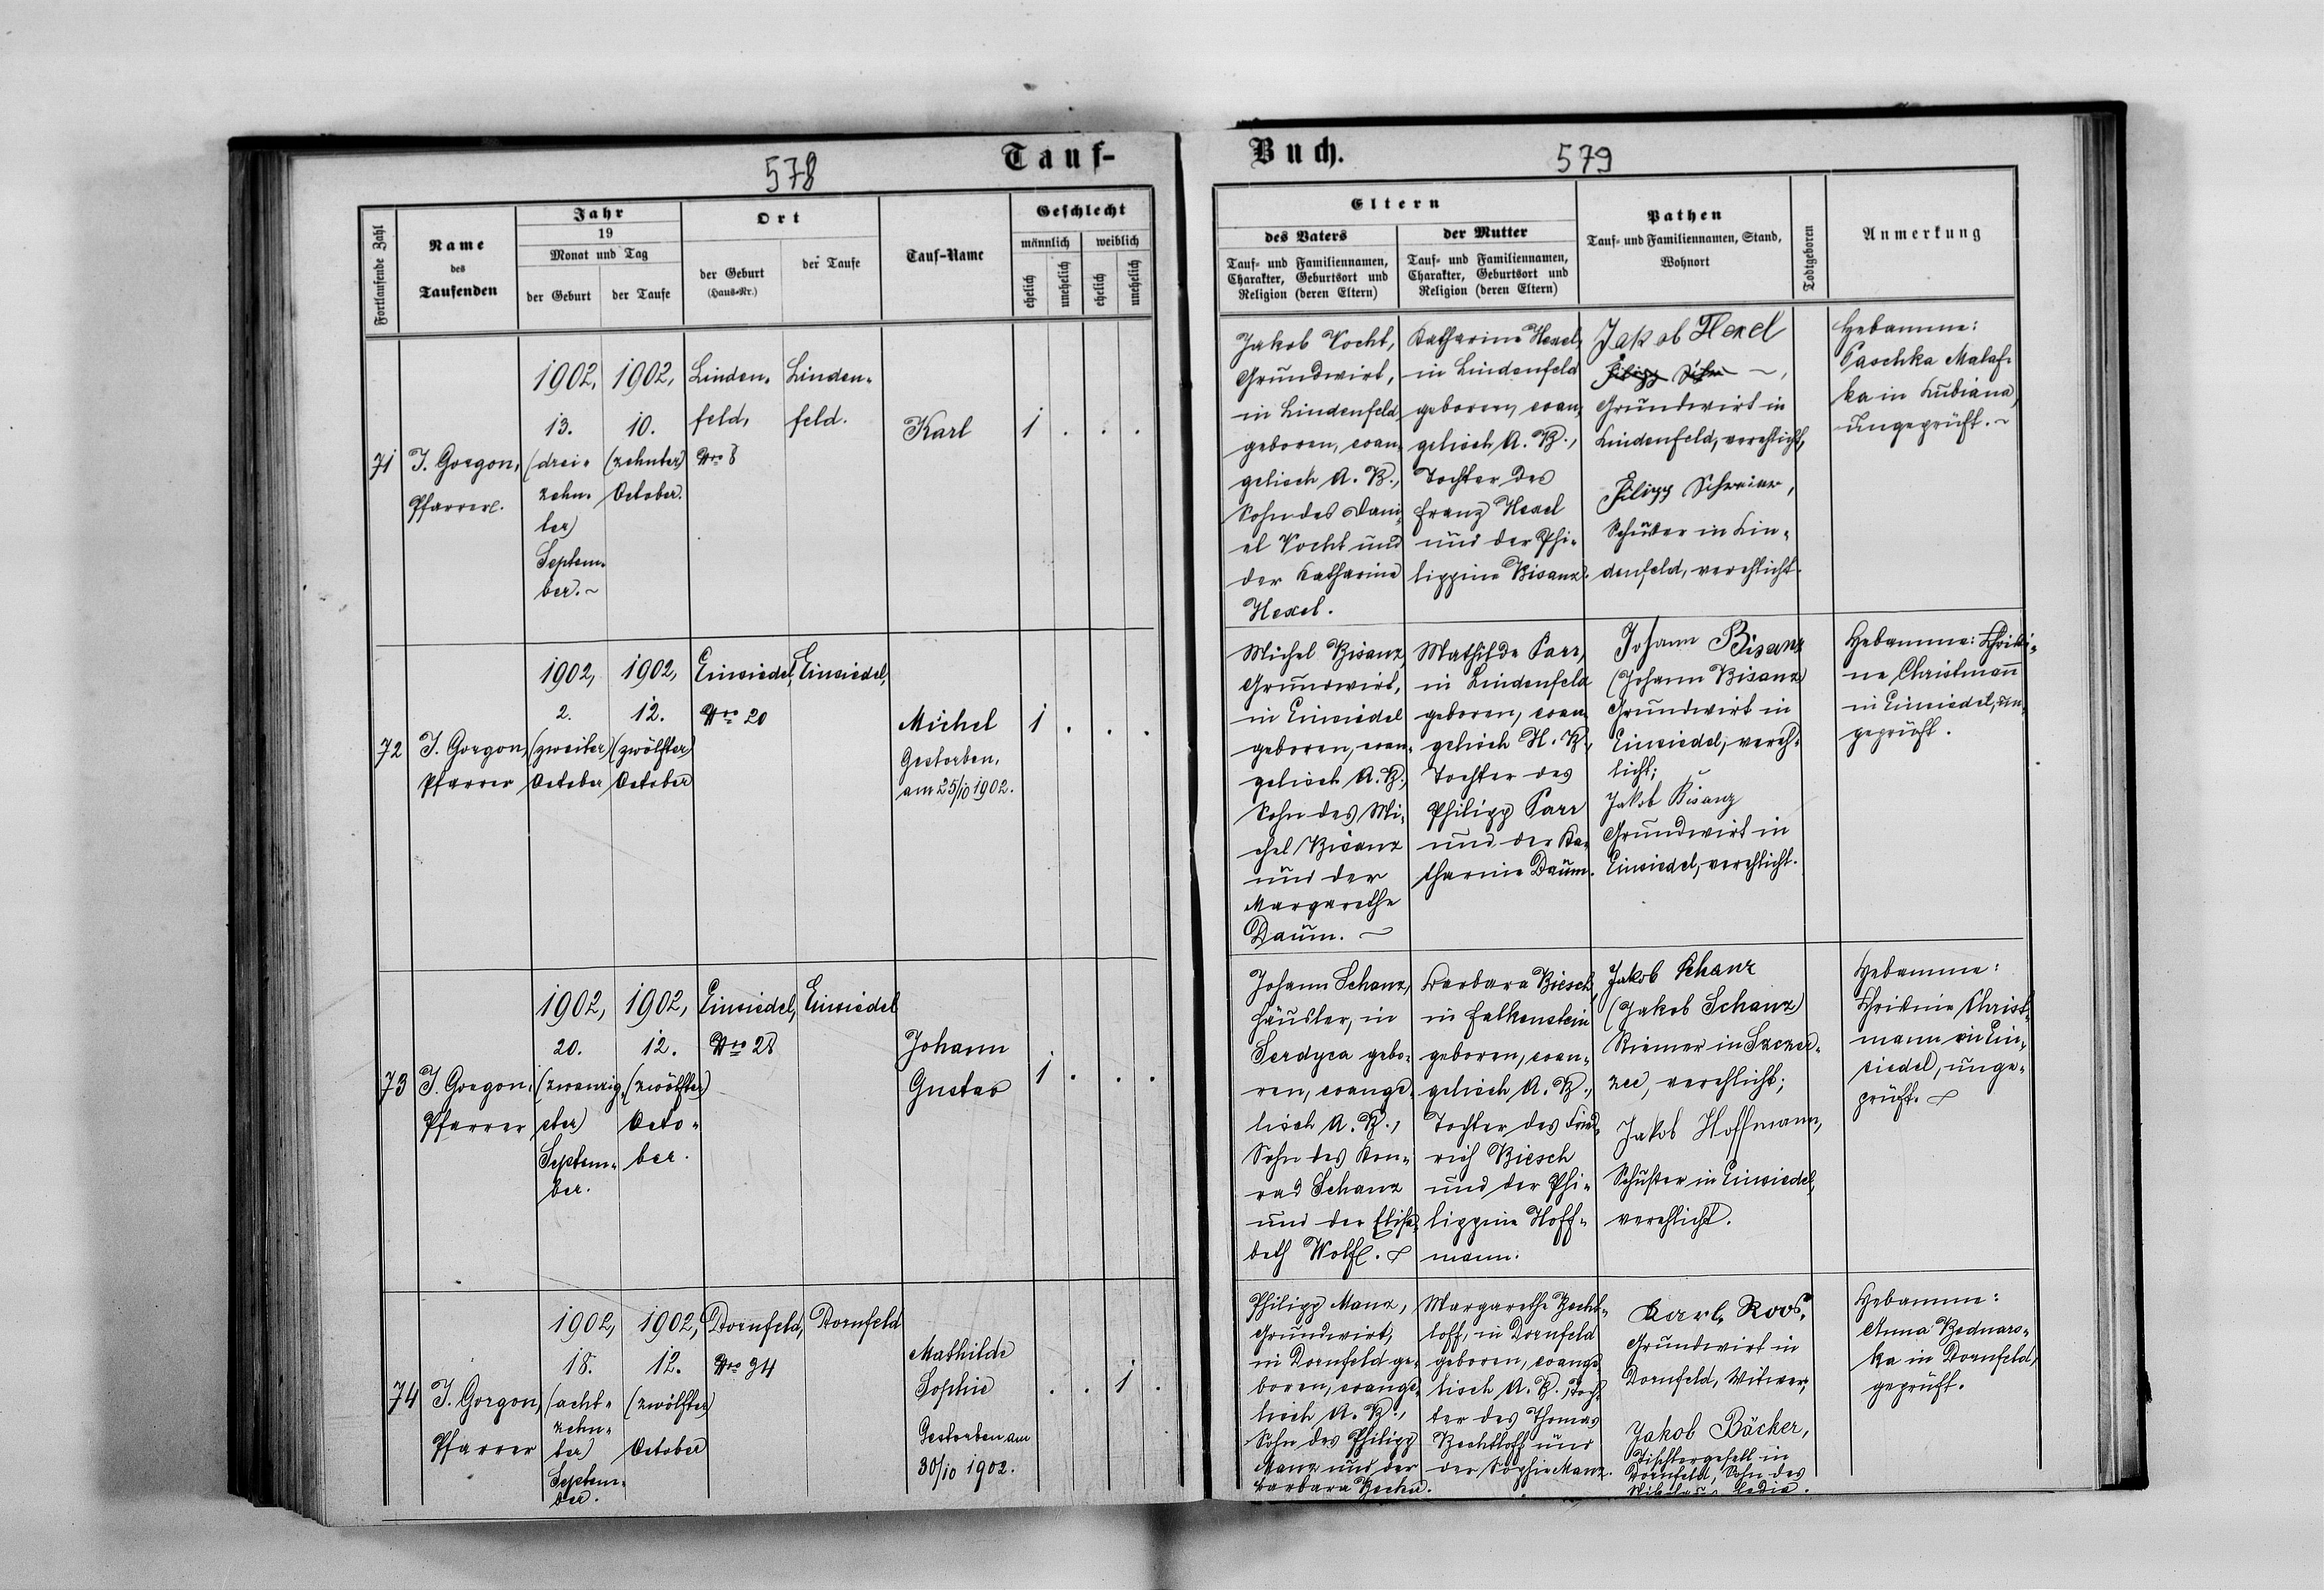 578
Tauf-
Fortlaufende Zahl
Name
des
Taufenden
Jahr
19
Monat und Tag
der Geburt
der Taufe
Ort
der Geburt
(Haus-Nr.)
der Taufe
Tauf-Name
Geschlecht
männlich
weiblich
ehelich
unehelich
ehelich
unehelich
71
J. Gorgon,
Pfarrer.
1902,
13.
(drei-
zehn-
ter)
Septem-
ber.~
1902,
10.
(zehnter)
October.
Linden-
feld,
Nro 8
Linden-
feld.
Karl
1 . . .
72
J. Gorgon,
Pfarrer
1902,
2.
(zweiter)
October
1902,
12.
(zwölfter)
October
Einsiedel,
Nro 20
Einsiedel,
Michel
Gestorben,
am 25/10 1902.
1 . . .
73
J. Gorgon,
Pfarrer
1902,
20.
(zwanzig-
ster)
Septem-
ber.
1902,
12.
(zwölfter)
Octo-
ber.
Einsiedel,
Nro 28
Einsiedel
Johann
Gustav
1 . . .
74
J. Gorgon,
Pfarrer
1902,
18.
(acht-
zehn-
ter)
Septem-
ber.
1902,
12.
(zwölfter)
October
Dornfeld,
Nro 94
Dornfeld
Mathilde
Sophie
Gestorben am
30/10 1902.
. . 1 .
Buch.
579
Eltern
des Vaters
Tauf- und Familiennamen,
Charakter, Geburtsort und
Religion (deren Eltern)
der Mutter
Tauf- und Familiennamen,
Charakter, Geburtsort und
Religion (deren Eltern)
Pathen
Tauf- und Familiennamen, Stand,
Wohnort
Todtgeboren
Anmerkung
Jakob Vocht,
Grundwirt,
in Lindenfeld
geboren, evan-
gelisch A. B.,
Sohn des Dani-
el Vocht und
der Katharina
Hexel.
Katharina Hexel,
in Lindenfeld
geboren, evan-
gelisch A. B.,
Tochter des
Franz Hexel
und der Phi-
lippine Bisanz.
Jakob Hexel
Grundwirt in
Lindenfeld, verehlicht,
Filipp Schreier,
Schuster in Lin-
denfeld, verehlicht.
Hebamme:
Paschka Malaf-
ka in Lubiana,
ungeprüft.~
Michel Bisanz,
Grundwirt,
in Einsiedel
geboren, evan-
gelisch A. B.,
Sohn des Mi-
chel Bisanz
und der
Margarethe
Daum. ~
Mathilde Parr,
in Lindenfeld
geboren, evan-
gelisch H. B.,
Tochter des
Philipp Parr
und der Ka-
tharina Daum.
Johann Bisanz
(Johann Bisanz)
Grundwirt in
Einsiedel, vereh-
licht;
Jakob Bisanz
Grundwirt in
Einsiedel, verehlicht.
Hebamme: Christi-
ne Christmann
in Einsiedel, un-
geprüft.
Johann Schanz,
Häusler, in
Serdyca gebo-
ren, evange-
lisch A. B.,
Sohn des Kon-
rad Schanz
und der Elisa-
beth Wolf.
Barbara Biesch,
in Falkenstein
geboren, evan-
gelisch A. B.,
Tochter des Fried-
rich Biesch
und der Phi-
lippine Hoff-
mann.
Jakob Schanz
(Jakob Schanz)
Riemer in Szczer-
zec, verehlicht;
Jakob Hoffmann,
Schuster in Einsiedel,
verehlicht.
Hebamme:
Christine Christ-
mann in Ein-
siedel, unge-
prüft.
Philipp Manz,
Grundwirt,
in Dornfeld ge-
boren, evange-
lisch A. B.,
Sohn des Philipp
Manz und der
Barbara
Margarethe Becht-
loff, in Dornfeld
geboren, evange-
lisch A. B., Toch-
ter des Thomas
Bechtloff und
der Sophie Manz.
Karl Roos,
Grundwirt in
Dornfeld, Witwer;
Jakob Bäcker,
Tischlergesell in
Dornfeld, Sohn des
Nikolaus, ledig.
Hebamme:
Anna Bednars-
ka in Dornfeld,
geprüft.